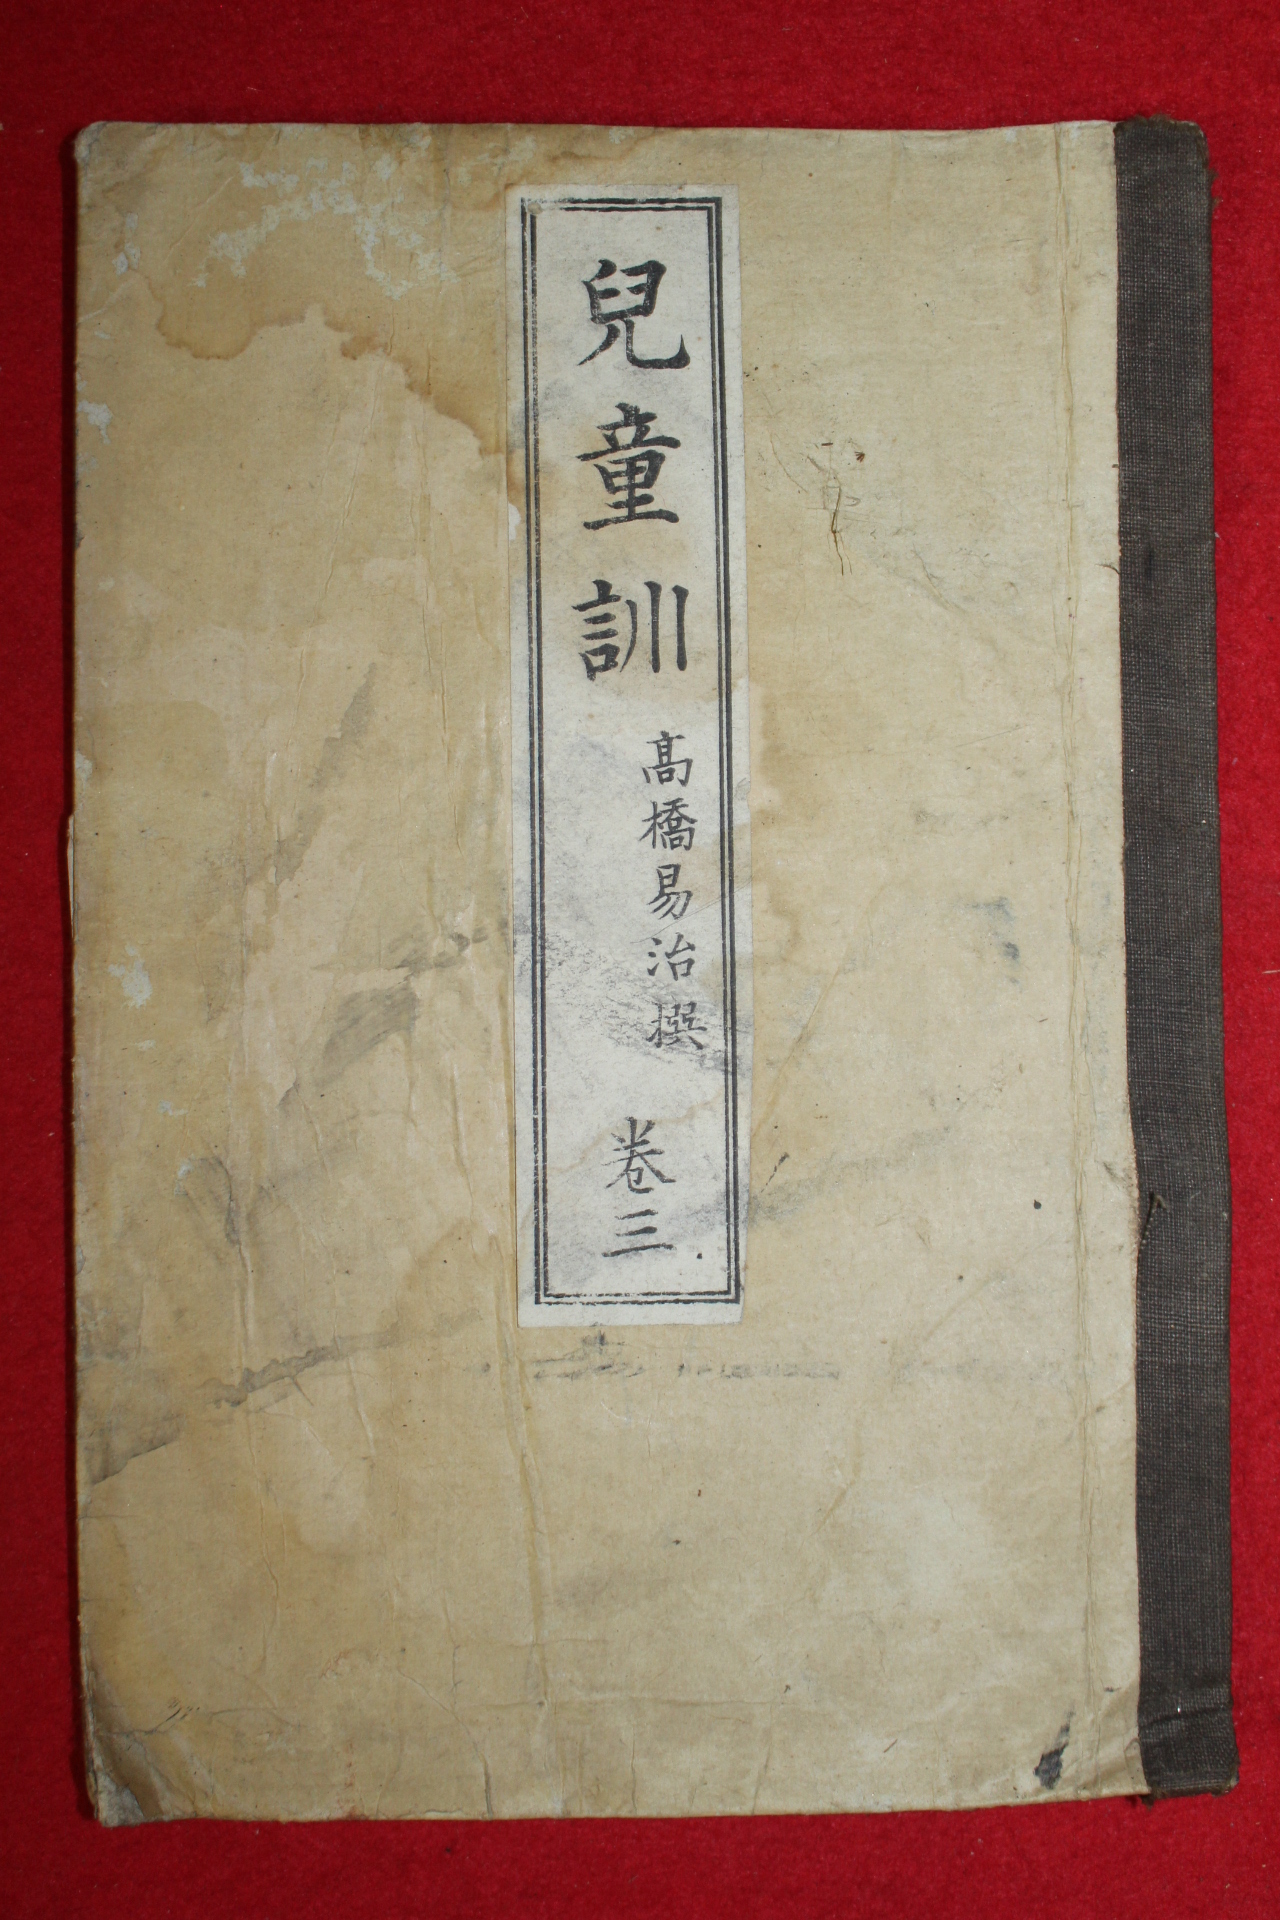 兒童訓
髙橋易治撰
卷三